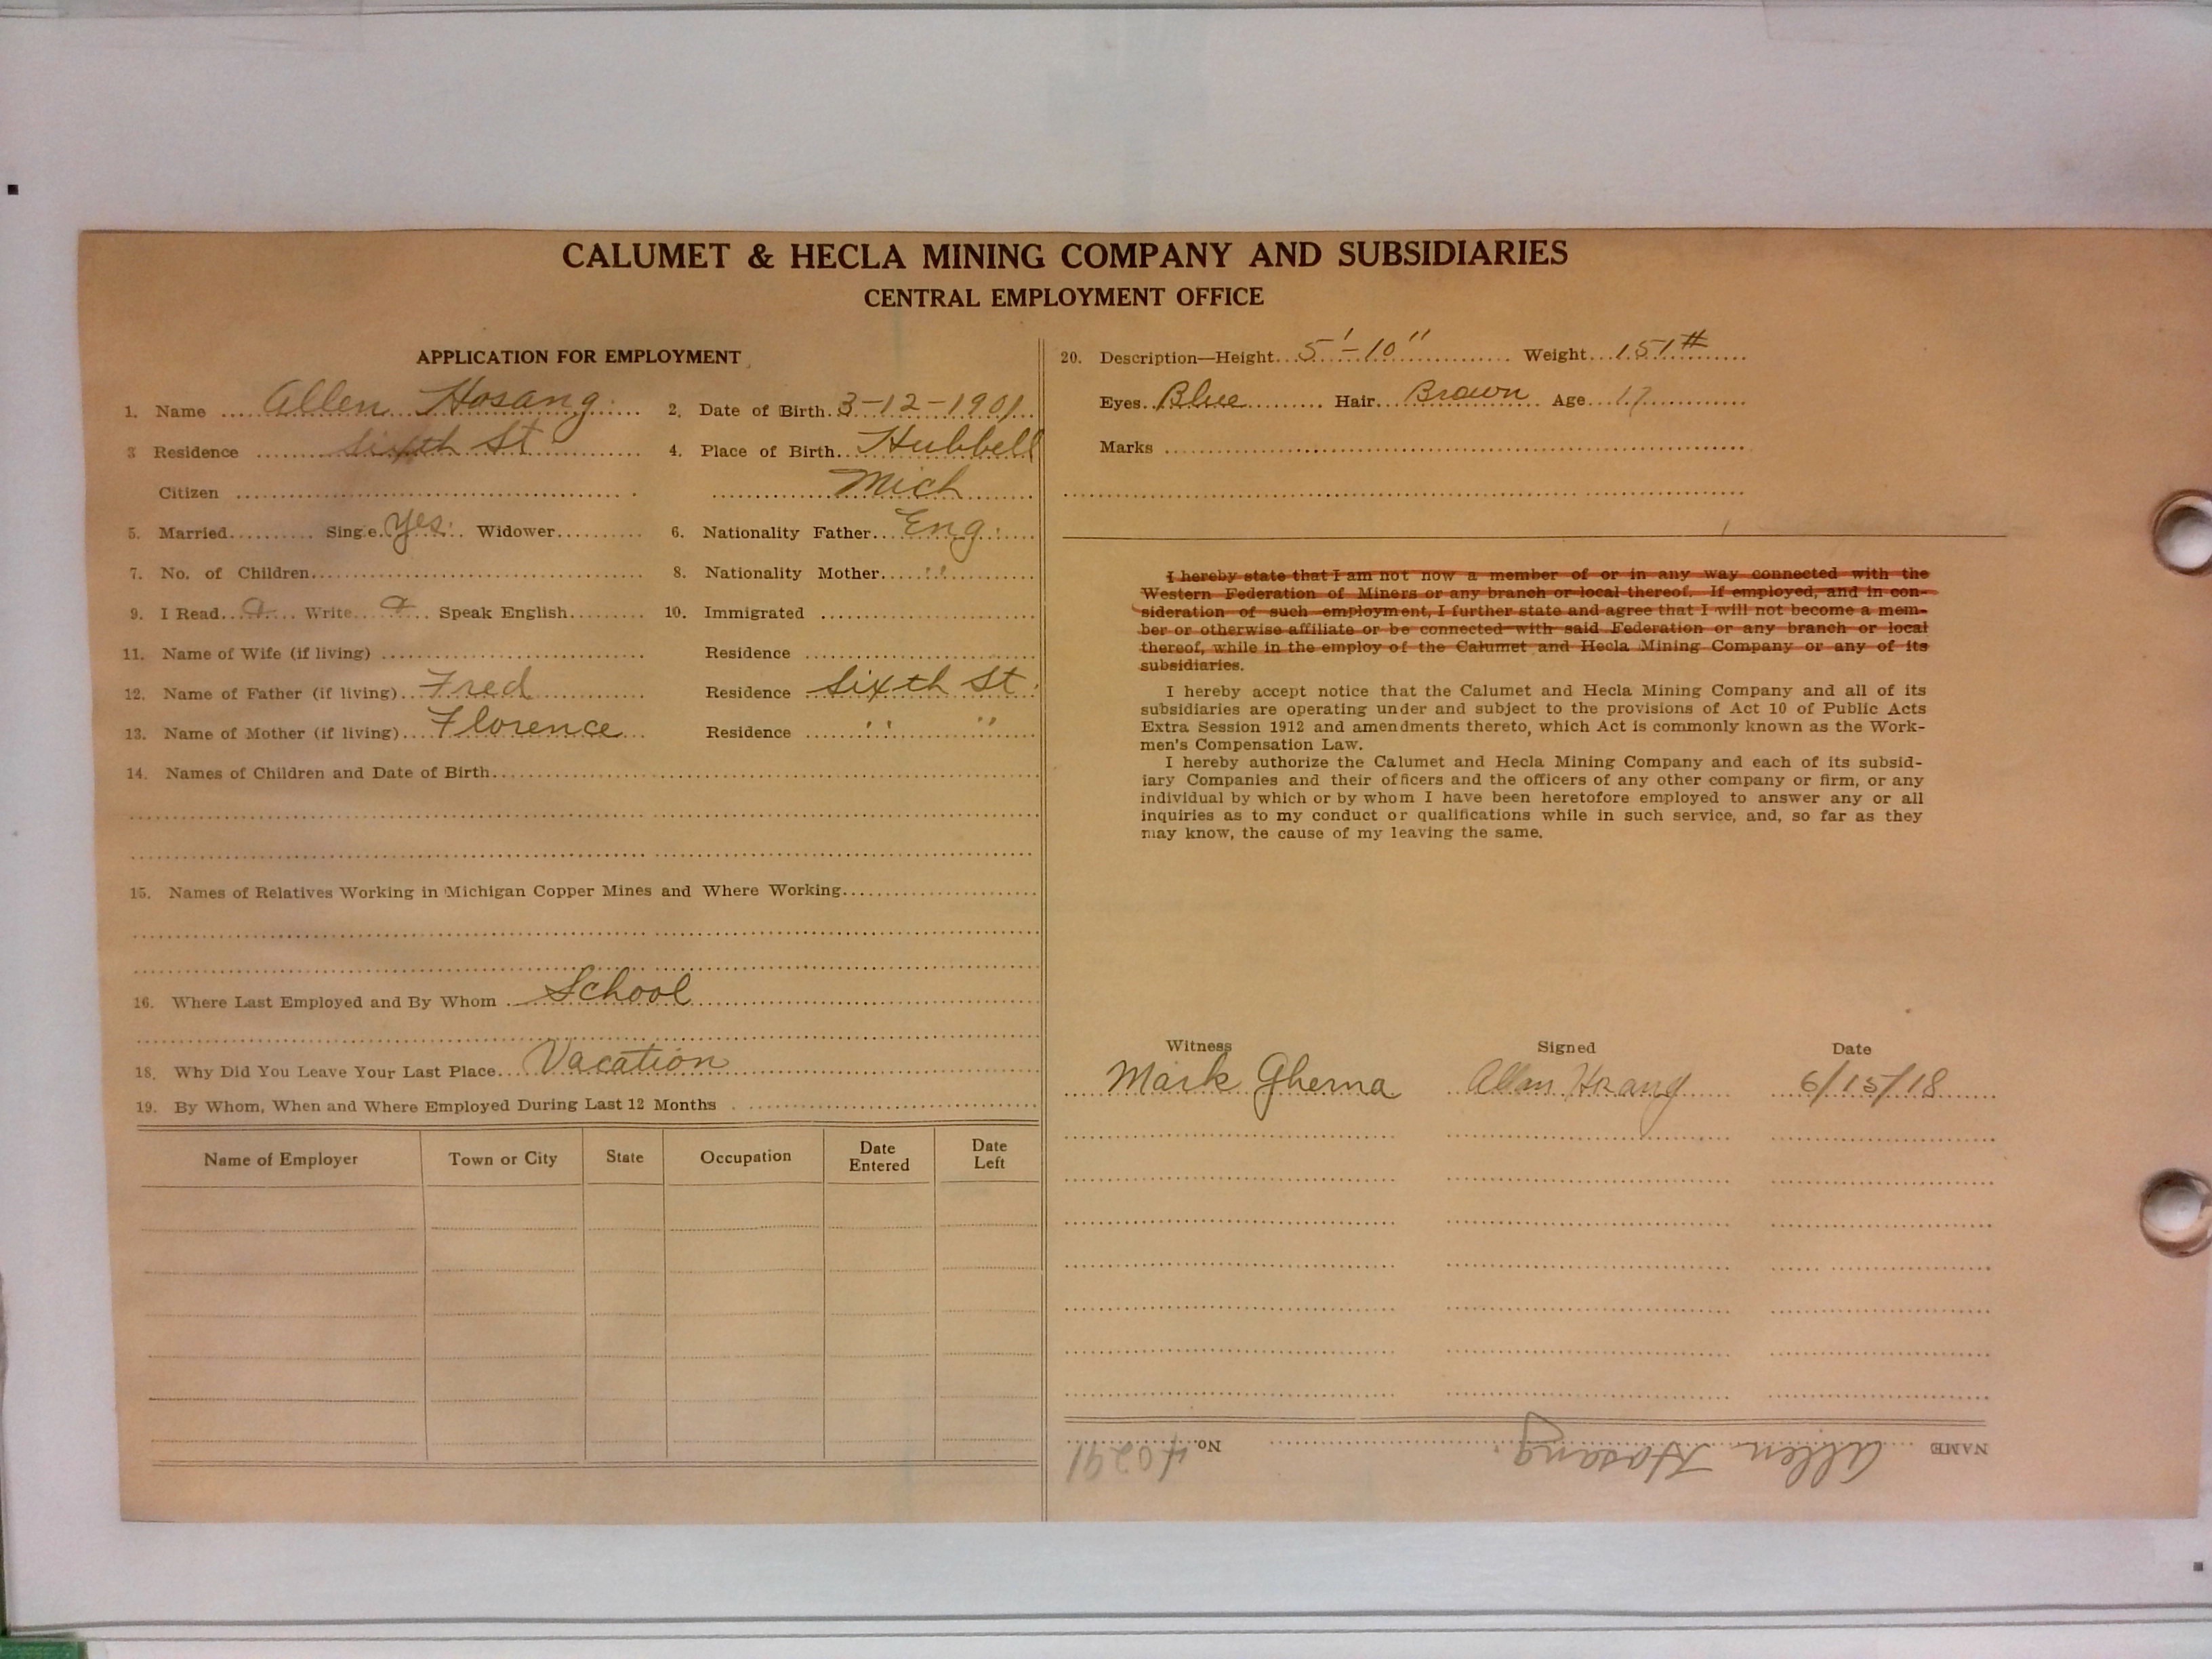 CALUMET & HECLA MINING COMPANY AND SUBSIDIARIES
CENTRAL EMPLOYMENT OFFICE
APPLICATION FOR EMPLOYMENT
1. Name Allen Hosang 2. Date of Birth 3-12-1901
3 Residence Sixth St 4. Place of Birth Hubbell
Citizen Mich
5. Married Single Yes. Widower 6. Nationality Father Eng.
7. No. of Children 8. Nationality Mother "
9. I Read a Write a Speak English 10. Immigrated
11. Name of Wife (if living) Residence
12. Name of Father (if living) Fred Residence Sixth St.
13. Name of Mother (if living) Florence Residence " "
14. Names of Children and Date of Birth
15. Names of Relatives Working in Michigan Copper Mines and Where Working
16. Where Last Employed and By Whom School
18. Why Did You Leave Your Last Place Vacation
19. By Whom, When and Where Employed During Last 12 Months
Name of Employer Town or City State Occupation Date Entered Date Left
20. Description—Height 5'-10" Weight 151#
Eyes Blue Hair Brown Age 17
Marks
I hereby state that I am not now a member of or in any way connected with the
Western Federation of Miners or any branch or local thereof. If employed, and in con-
sideration of such employment, I further state and agree that I will not become a mem-
ber or otherwise affiliate or be connected with said Federation or any branch or local
thereof, while in the employ of the Calumet and Hecla Mining Company or any of its
subsidiaries.
I hereby accept notice that the Calumet and Hecla Mining Company and all of its
subsidiaries are operating under and subject to the provisions of Act 10 of Public Acts
Extra Session 1912 and amendments thereto, which Act is commonly known as the Work-
men's Compensation Law.
I hereby authorize the Calumet and Hecla Mining Company and each of its subsid-
iary Companies and their officers and the officers of any other company or firm, or any
individual by which or by whom I have been heretofore employed to answer any or all
inquiries as to my conduct or qualifications while in such service, and, so far as they
may know, the cause of my leaving the same.
Witness Signed Date
Mark Gherna Allan Hosang 6/15/18
NAME Allen Hosang. No. 40291